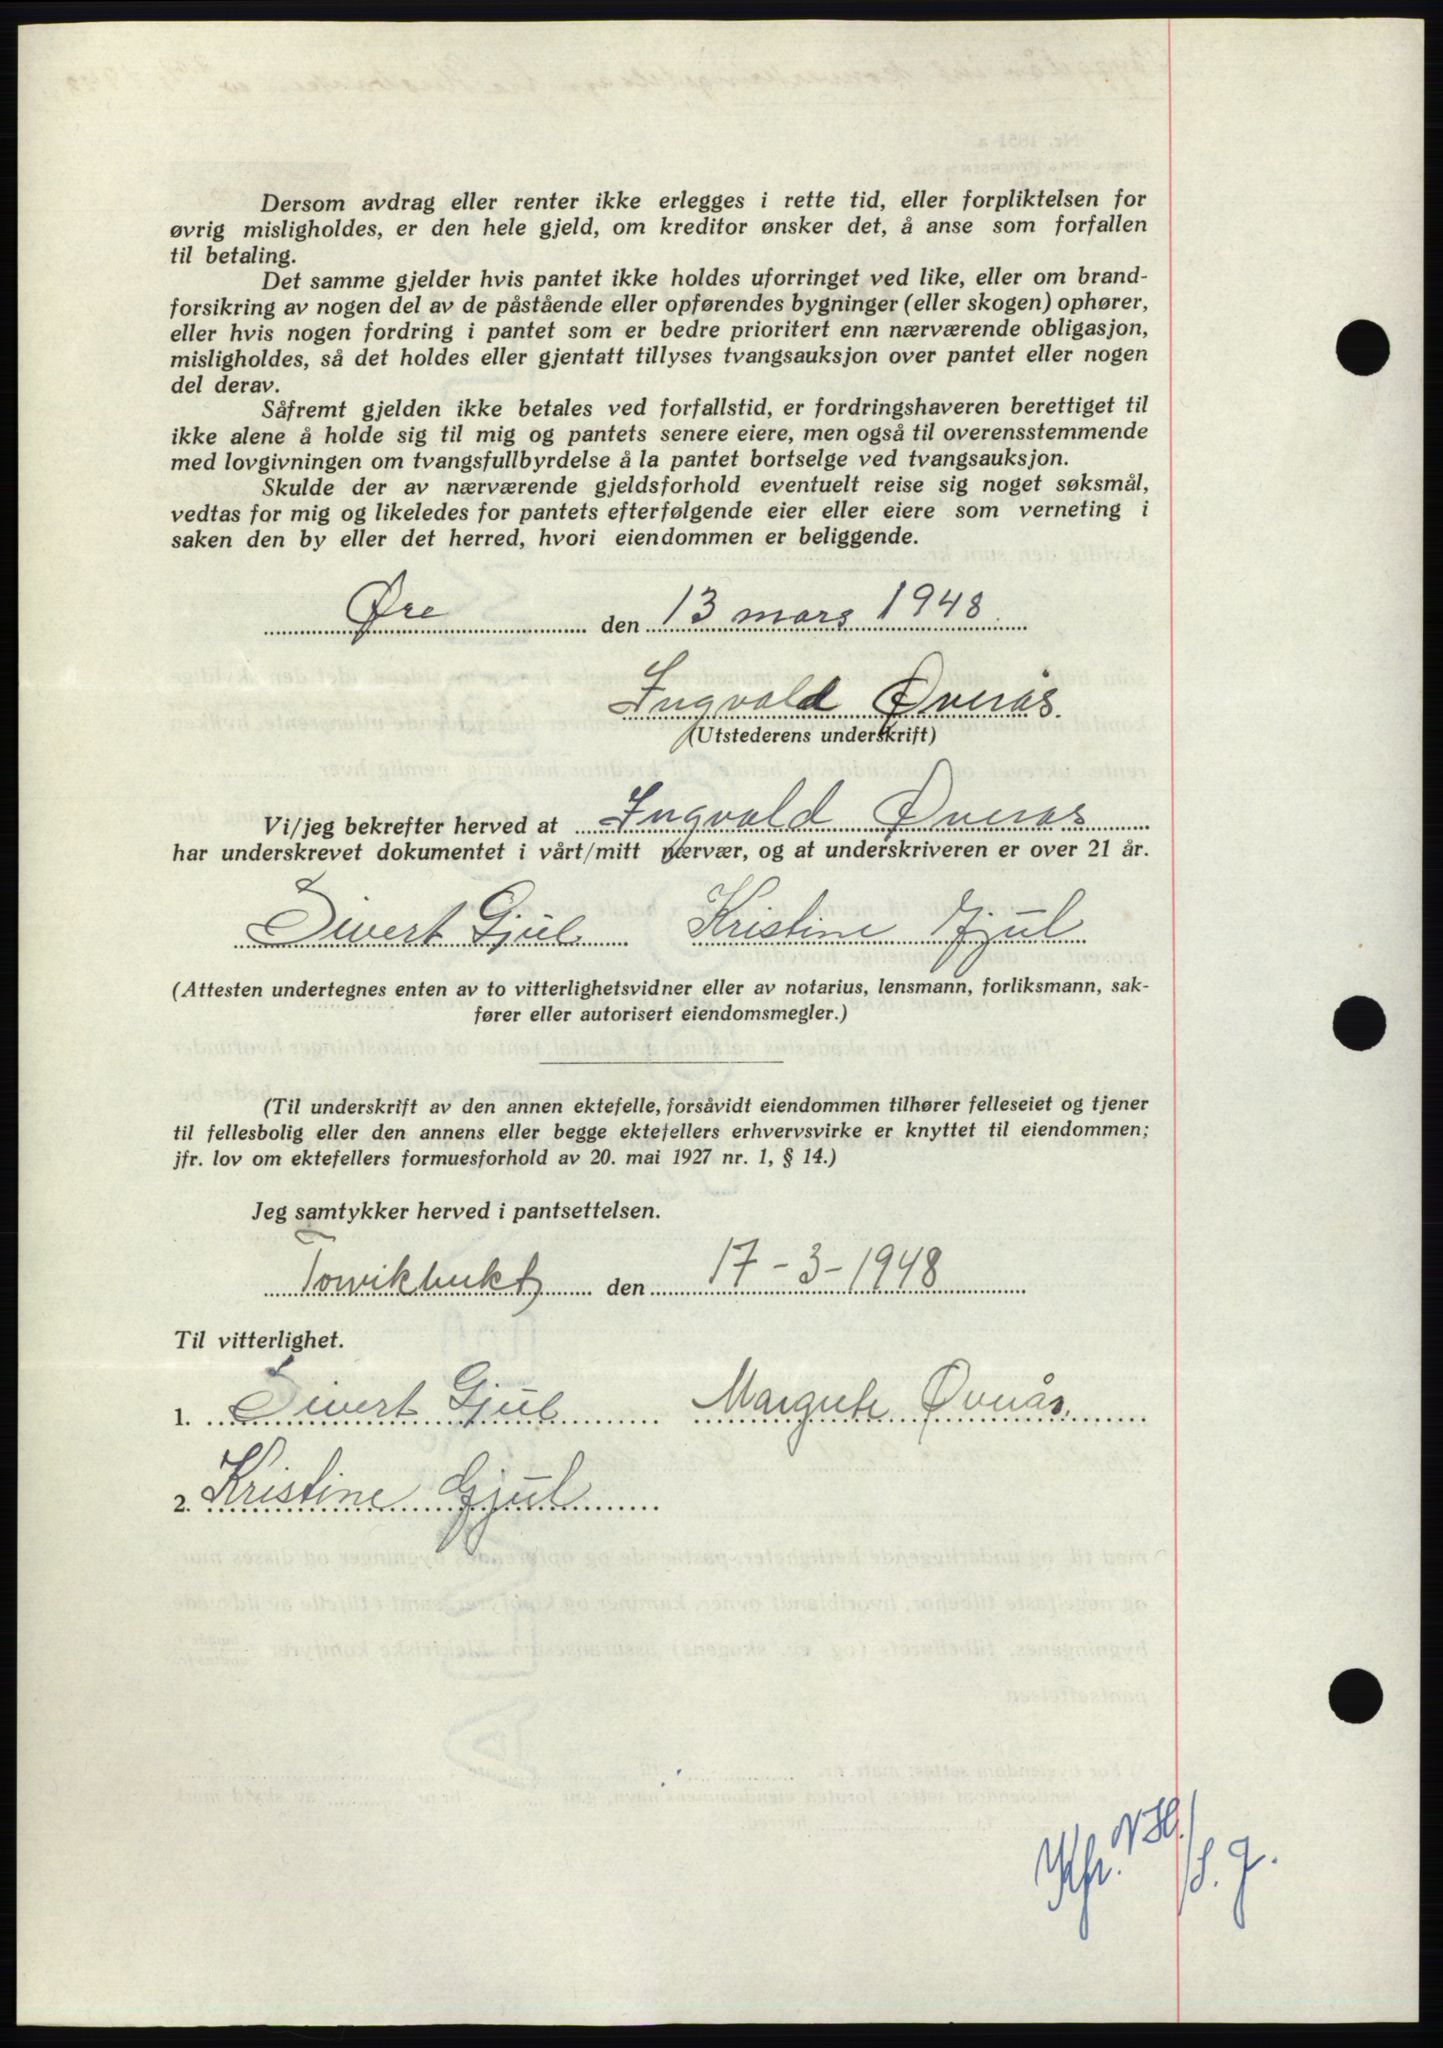 Dersom avdrag eller renter ikke erlegges i rette tid, eller forpliktelsen for
øvrig misligholdes, er den hele gjeld, om kreditor ønsker det, å anse som forfallen
til betaling.
Det samme gjelder hvis pantet ikke holdes uforringet ved like, eller om brand-
forsikring av nogen del av de påstående eller opførendes bygninger (eller skogen) ophører,
eller hvis nogen fordring i pantet som er bedre prioritert enn nærværende obligasjon,
misligholdes, så det holdes eller gjentatt tillyses tvangsauksjon over pantet eller nogen
del derav.
Såfremt gjelden ikke betales ved forfallstid, er fordringshaveren berettiget til
ikke alene å holde sig til mig og pantets senere eiere, men også til overensstemmende
med lovgivningen om tvangsfullbyrdelse å la pantet bortselge ved tvangsauksjon.
Skulde der av nærværende gjeldsforhold eventuelt reise sig noget søksmål,
vedtas for mig og likeledes for pantets efterfølgende eier eller eiere som verneting i
saken den by eller det herred, hvori eiendommen er beliggende.
Øre den 13 mars 1948.
Ingvald Øverås.
(Utstederens underskrift)
Vi/jeg bekrefter herved at Ingvald Øverås
har underskrevet dokumentet i vårt/mitt nærvær, og at underskriveren er over 21 år.
Sivert Gjül Kristine Gjül
(Attesten undertegnes enten av to vitterlighetsvidner eller av notarius, lensmann, forliksmann, sak-
fører eller autorisert eiendomsmegler.)
(Til underskrift av den annen ektefelle, forsåvidt eiendommen tilhører felleseiet og tjener
til fellesbolig eller den annens eller begge ektefellers erhvervsvirke er knyttet til eiendommen;
jfr. lov om ektefellers formuesforhold av 20. mai 1927 nr. 1, § 14.)
Jeg samtykker herved i pantsettelsen.
Torvikbukt den 17-3-1948
Til vitterlighet.
1. Sivert Gjül Margrete Øverås.
2. Kristine Gjül